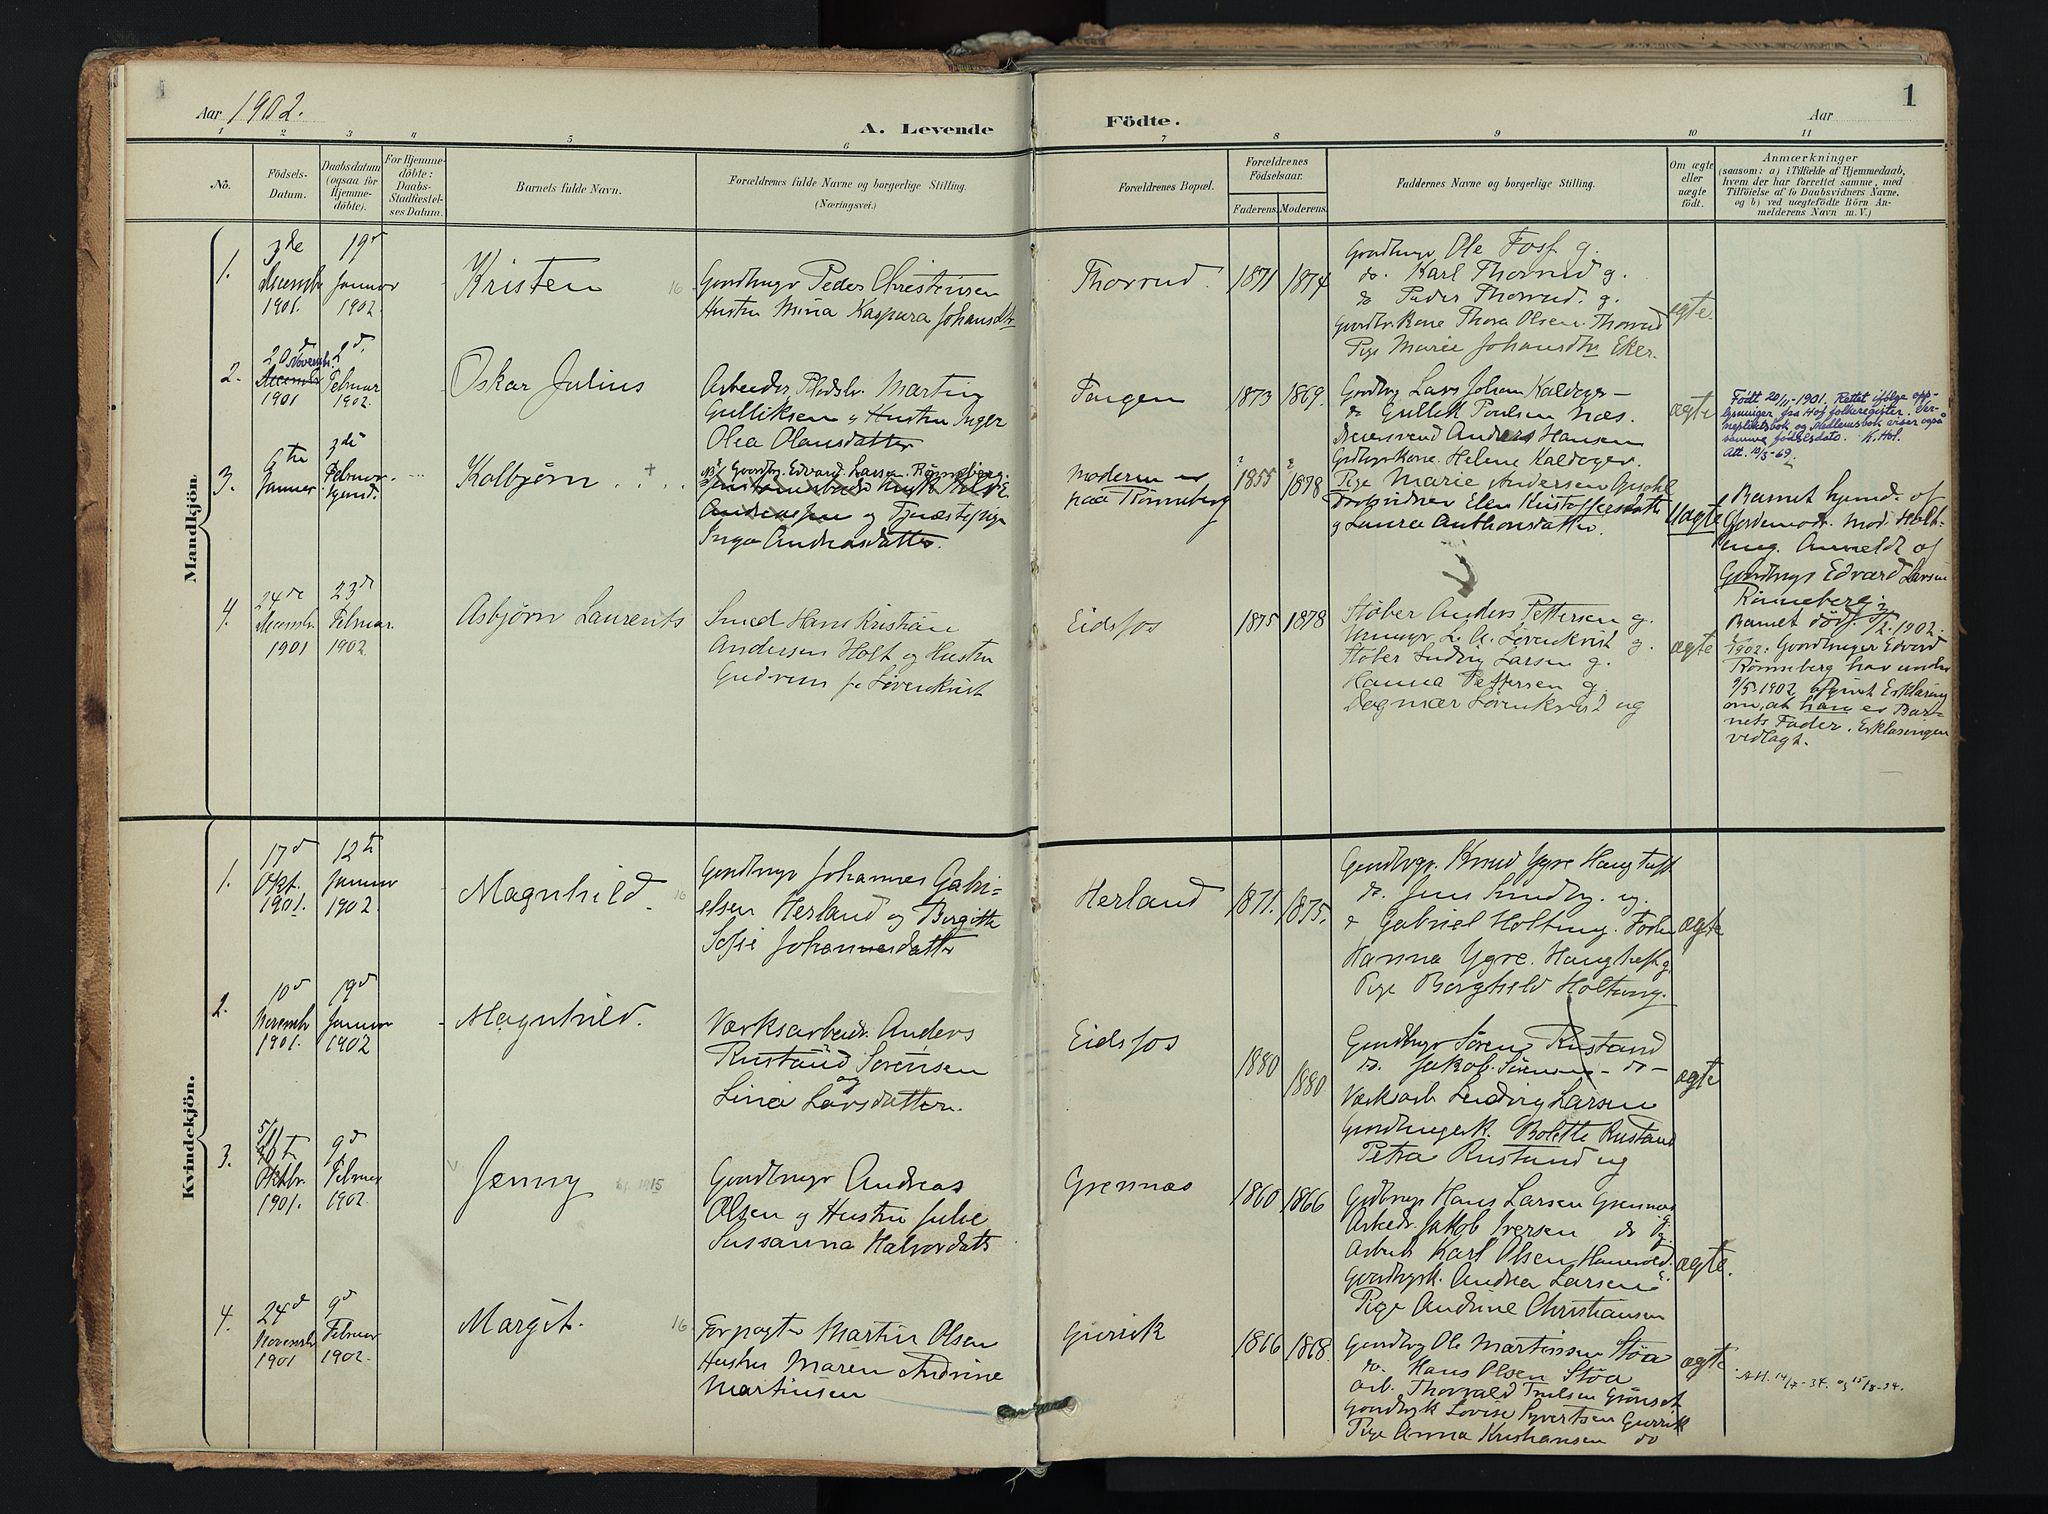 1
Aar 1902.
A. Levende
Födte.
Aar
1
1 2 3 4 5 6 7 8 9 10 11
No.
Födsels-
Datum.
Daabsdatum
(ogsaa for
Hjemme-
döbte).
For Hjemme-
döbte:
Daabs-
Stadfæstel-
ses Datum.
Barnets fulde Navn.
Forældrenes fulde Navne og borgerlige Stilling.
(Næringsvei.)
Forældrenes Bopæl.
Forældrenes
Födselsaar.
Faderens. Moderens.
Faddernes Navne og borgerlige Stilling.
Om ægte
eller
uægte
födt.
Anmærkninger
(saasom: a) i Tilfælde af Hjemmedaab,
hvem der har forrettet samme, med
Tilföielse af to Daabsvidners Navne.
og b) ved uægtefödte Börn An-
melderens Navn m. V.)
Mandkjön.
1.
3de
Decembr
1901.
19d
Januar
1902.
Kristen
16
Gaardbruger Peder Christensen
Hustru Mina Kaspara Johansdtr
Thorrud.
1871 1874
Gaardbruger Ole Foss g.
do. Karl Thorrud g.
do Peder Thorrud. g.
Gaardbr.Kone Thora Olsen Thorrud
Pige Marie Johansdtr Eker.
ægte.
2.
20d
Novembr.
Decembr
1901
2d.
Februar
1902.
Oskar Julius
Arbeider, Pladsbr. Martin
Gulliksen og Hustru Inger
Olea Olausdatter
Tangen
1873 1869.
Gaardbrg Lars Johan Kaldager
do Gullik Poulsen Næs.
Anders Hansen
Helene Kaldager.
ægte
Født 20/11-1901. Rettet ifølge opp-
lysninger fra Hof folkeregister. Ver-
nepliktsbok og Medlemsbok viser også
samme fødselsdato. K. Hol.
Att. 10/3-69
3.
9tn
Januar.
3de
Februar
Kolbjørn . . .
+
Gaardbr. Edvard Larsen Rønneberg.
Andreassen og Tjenestepige
Inga Andreasdatter.
Moderen er
paa Rønneberg
1855 1878
Pige Marie Andersen Gjeske
Daabsvidner Elen Kristoffersdatter
g Laura Anthonsdatter.
uægte
Barnet hjemd. af
Gjordemodr. Mod. Holt-
ung. Anmeldt af
Gaardbruger Edvard Larsen
Rønneberg.
Barnet død. /2.1902.
1902: Gaardbruger Edvard
Rønneberg har under
9/5.1902 afgivet Erklæring
om, at han er Bar-
nets Fader. Erklæringen
vedlagt.
4.
24de
Decembr
1901
23de
Februar
1902.
Asbjørn Laurents
Smed Hans Kristian
Andersen Holt og Hustru
Gudrun f. Løvenkvist
Eidsfos
1875 1878
Støber Anders Pettersen g.
L. A. Løvenkvist g.
Støber Ludvig Larsen g.
Hanna Pettersen g.
Dagmar Løvenkvist ug
ægte
Kvindekjön.
1.
17d
Okt.
1901.
12te
Januar
1902.
Magnhild
16
Gaardbruger Johannes Gabri-
elsen Herland og Bergitte
Sofie Johannesdatter
Herland
1871. 1875.
Gaardbrgr. Knud Ygre Haugtuft
do. Jens Sundby. ug.
do Gabriel Holtung.
Hanna Ygre. Haugtuft g.
Pige Borghild Holtung.
ægte
2.
10d
Novembr
1901.
19d
Januar
1902
Magnhild.
Værksarbeidr. Anders
Rustand Sørensen
og
Lina Larsdatter.
Eidsfos
1880 1880
Gaardbruger Søren Rustand
do. Jakob Sørensen - do -
Værksarb Ludvig Larsen
Gaardbrugerk. Bolette Rustand
Petra Rustand ug
ægte
3.
5/11
Oktbr.
1901.
9d
Februar
1902.
Jenny
Gaardbruger Andreas
Olsen og Hustru Julie
Sussanna Halvordatt.
Grennes
1860 1866
Gaardbruger Hans Larsen Grennes
Arbedr. Jakob Iversen do g.
Arbeid. Karl Olsen
Gaardbrugsk. Andrea Larsen
Pige Andrine Christiansen
ægte.
4.
24d
Novembr
1901
9d
Februar
1902.
Margit.
16.
Forpagter Martin Olsen
Hustru Maren Andrine
Martinsen
Gurrik
1866 1868.
Gaardbrg Ole Martinsen Støa
do. Hans Olsen Støa
Arb. Thorvald Truelsen Grønset
Gaardbrk Lovise Syvertsen Gurrik
Pige Anna Kristiansen do
ægte.
A.H. 14/7-34. og 15/8-34.